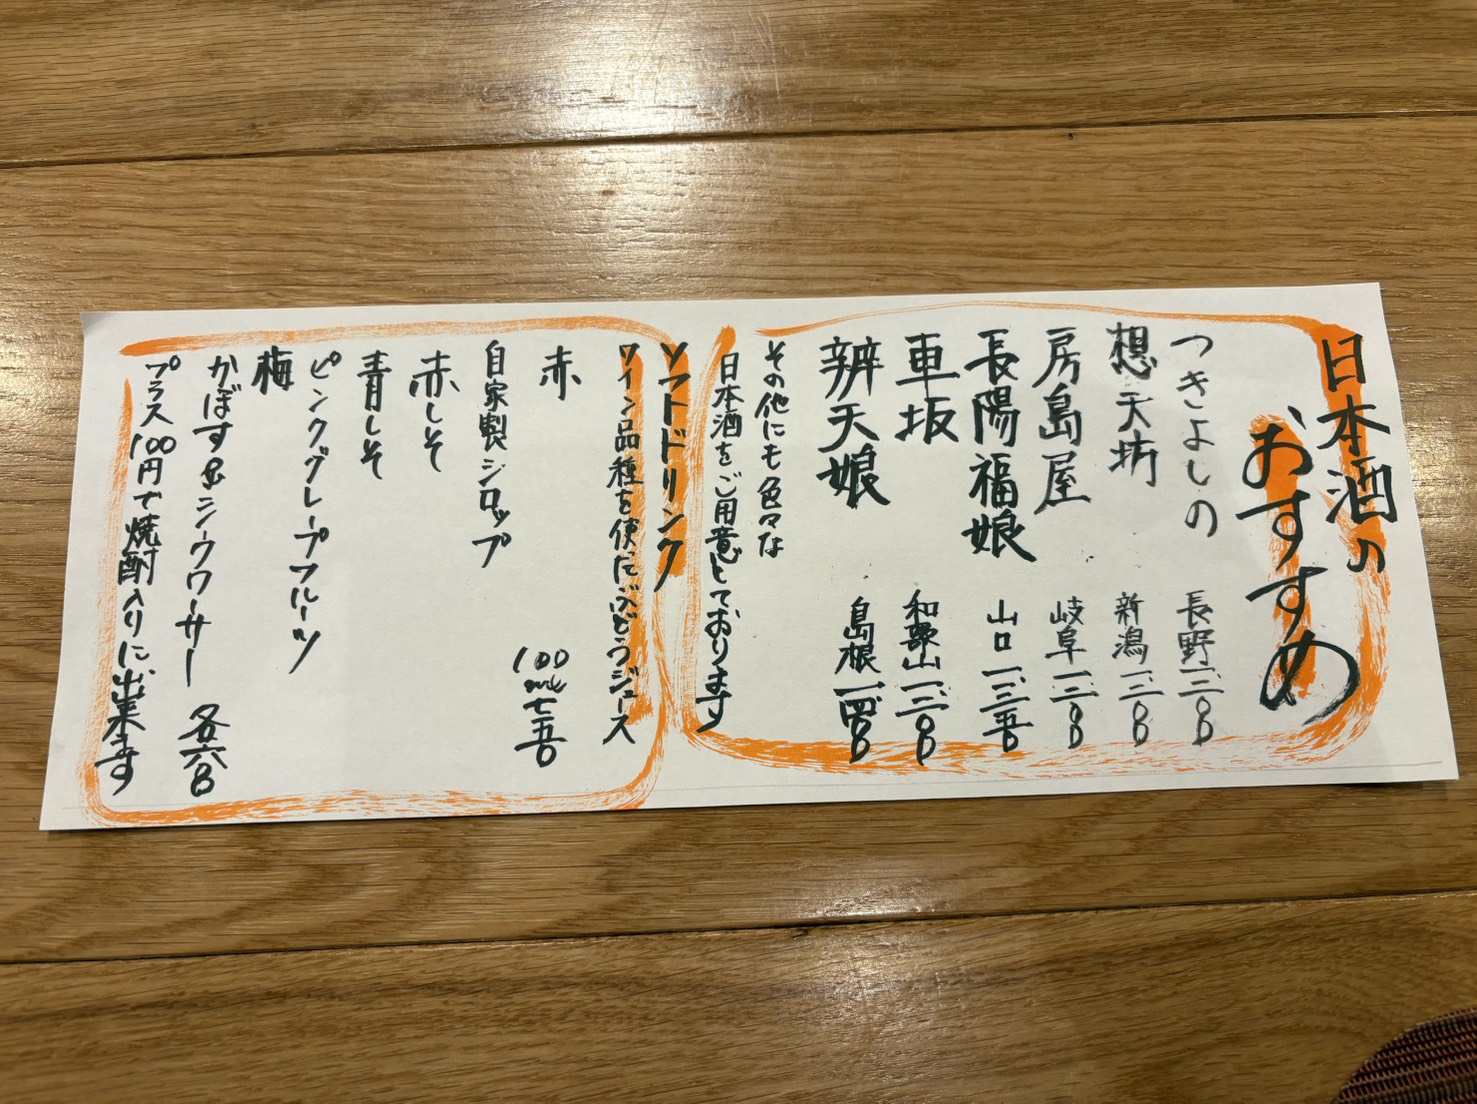 日本酒の
おすすめ
つきよしの 長野 一二〇〇
想天坊 新潟 一二〇〇
房島屋 岐阜 一二〇〇
長陽福娘 山口 一三五〇
車坂 和歌山 一二〇〇
辨天娘 島根 一四〇〇
その他にも色々な
日本酒をご用意しております
ソフトドリンク
ワイン品種を使ったぶどうジュース
赤 100ml 七五〇
自家製シロップ
赤しそ
青しそ
ピンクグレープフルーツ
梅
かぼす&シークワーサー 各六〇〇
プラス100円で焼酎入りに出来ます